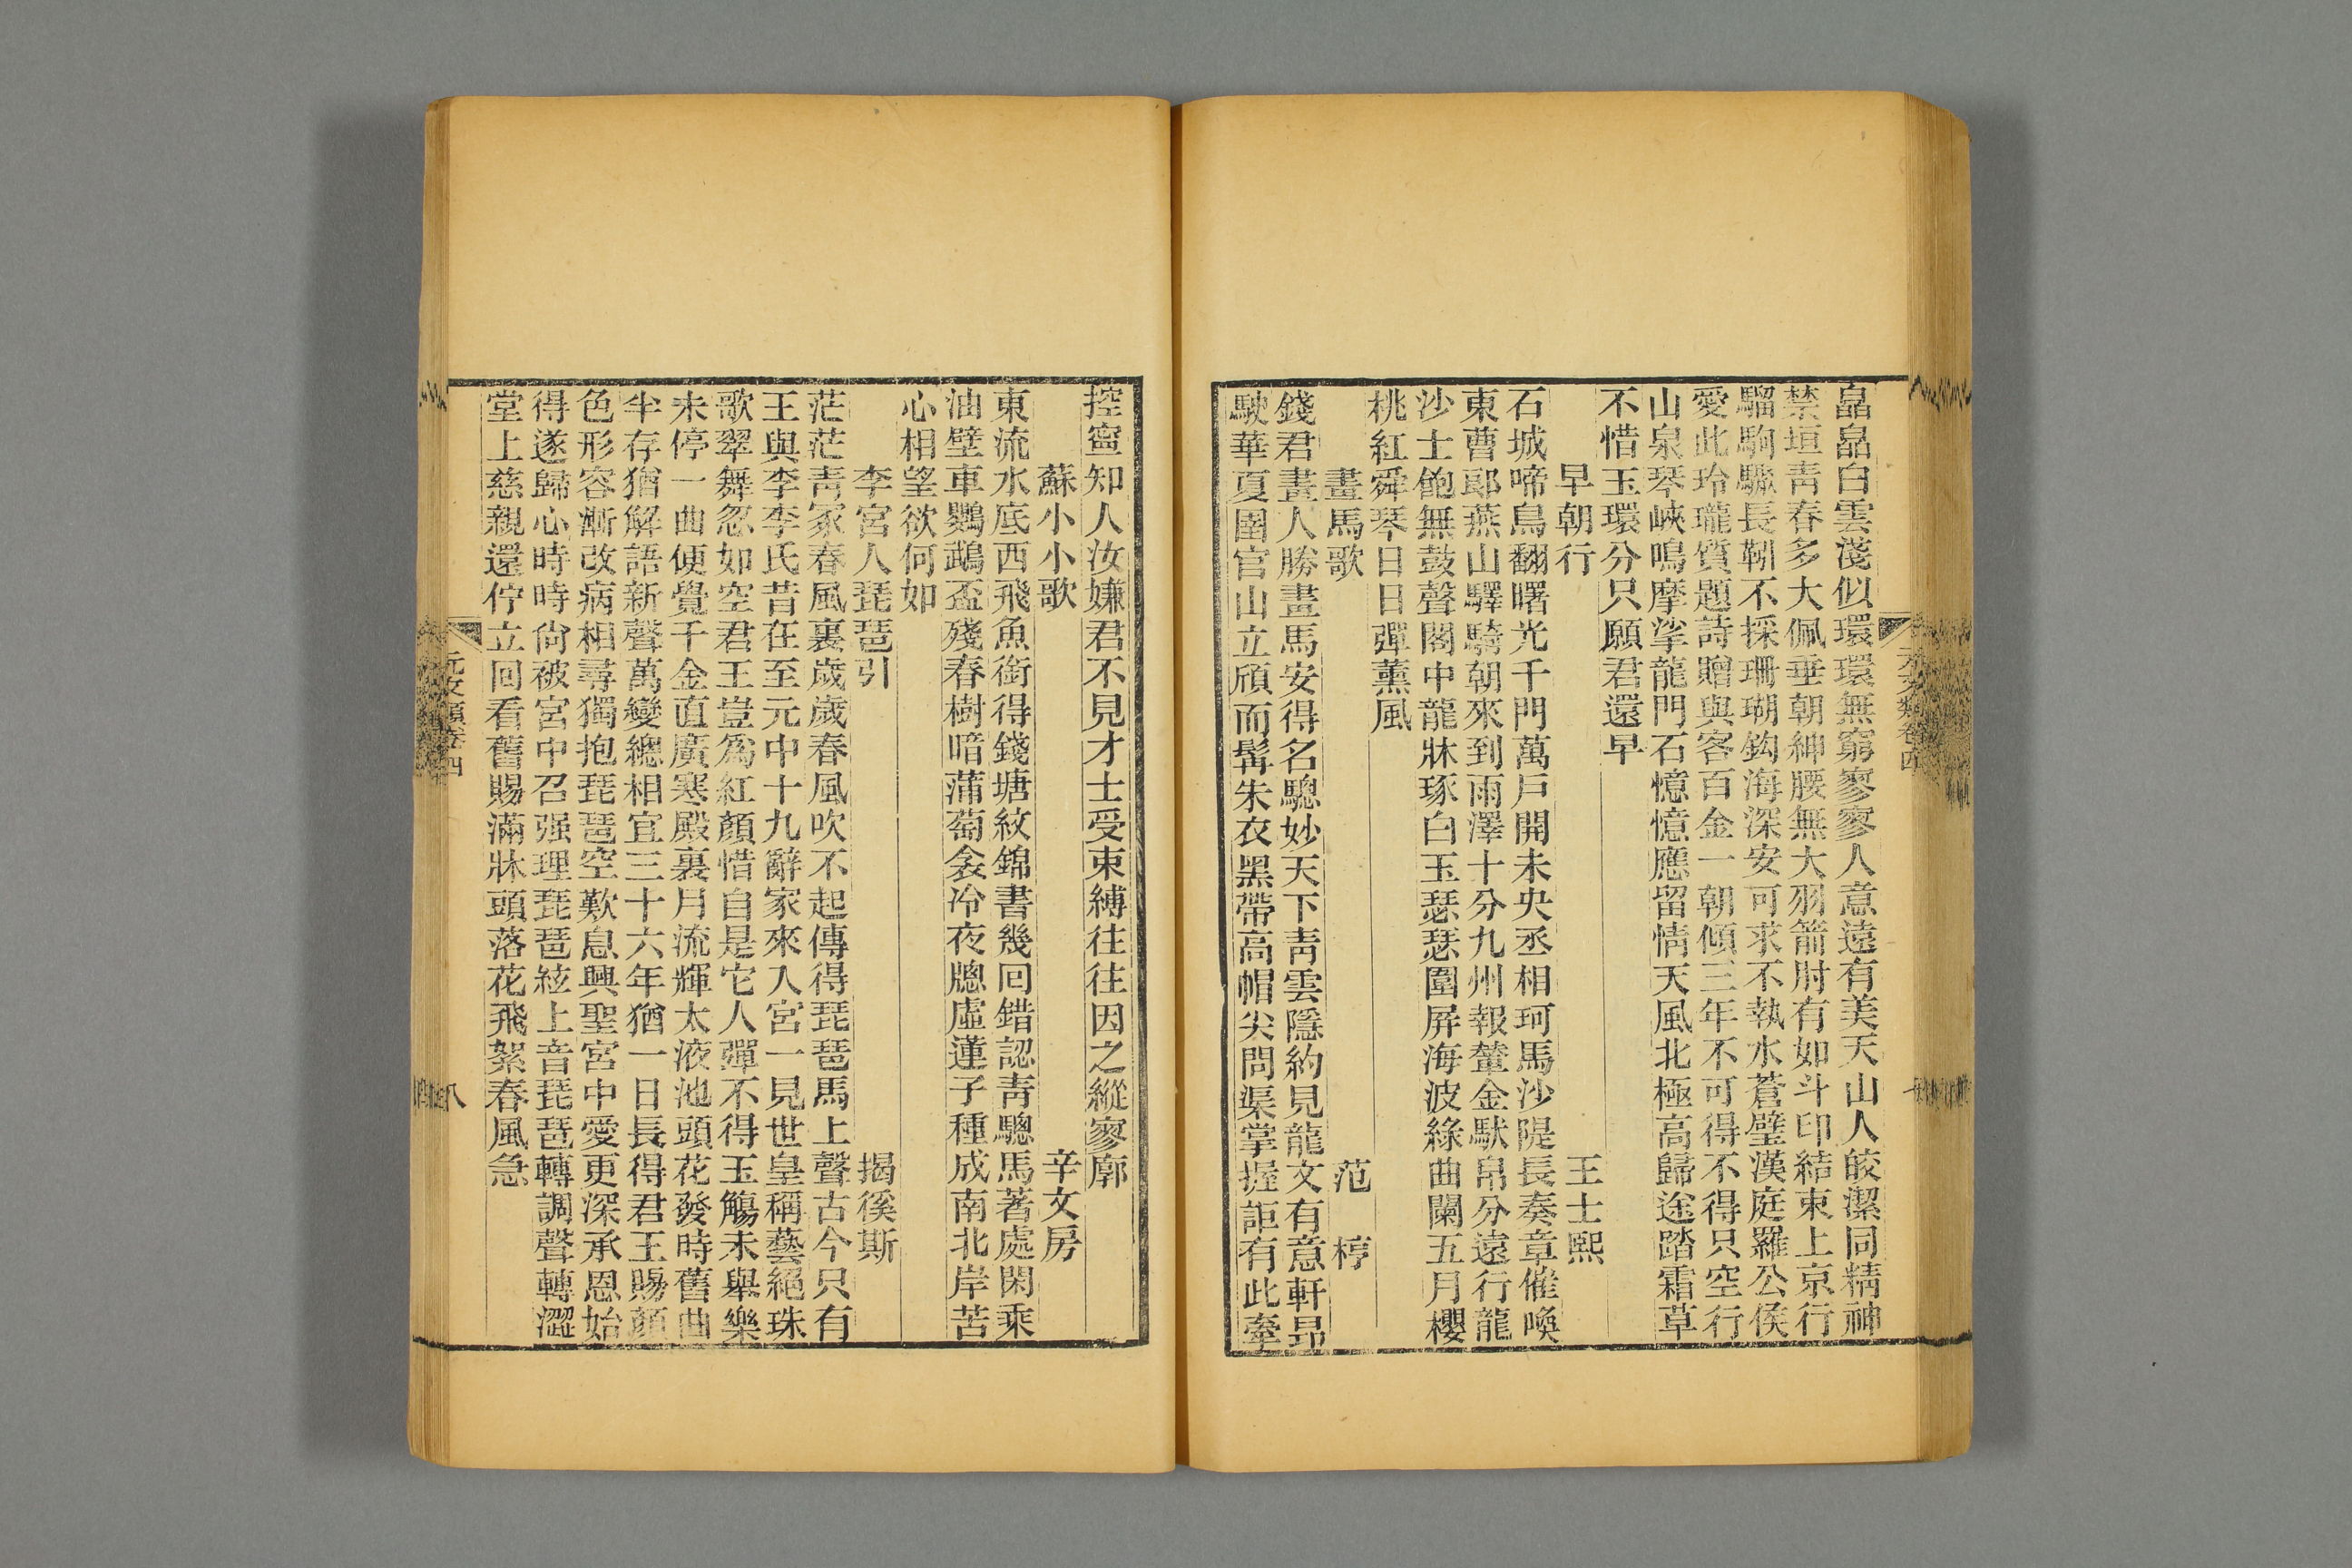 皛皛白雲淺似環環無窮寥寥人意遠有美天山人皎潔同精神
禁垣靑春多大佩垂朝紳腰無大羽箭肘有如斗印結束上京行
騮駒驟長靷不採珊瑚鈎海深安可求不執水蒼璧漢庭羅公侯
愛此玲瓏質題詩贈與客百金一朝傾三年不可得不得只空行
山泉琴峽鳴摩挲龍門石憶憶應留情天風北極高歸途踏霜草
不惜玉環分只願君還早
早朝行 王士熙
石城啼鳥翻曙光千門萬戸開未央丞相珂馬沙隄長奏章催喚
東曹郞燕山驛騎朝來到雨澤十分九州報輦金馱帛分遠行龍
沙士飽無鼓聲閣中龍牀琢白玉瑟瑟圍屏海波綠曲闌五月櫻
桃紅舜琴日日彈薰風
畫馬歌 范梈
錢君畫人勝畫馬安得名驄妙天下靑雲隱約見龍文有意軒昻
駛華夏圉官山立頎而髯朱衣黑帶高帽尖問渠掌握詎有此牽
控寍知人汝嫌君不見才士受束縛往往因之縱寥廓
蘇小小歌 辛文房
東流水底西飛魚銜得錢塘紋錦書幾回錯認靑驄馬著處閑乘
油壁車鸚鵡盃殘春樹暗蒲萄衾冷夜牕虛蓮子種成南北岸苦
心相望欲何如
李宮人琵琶引 揭徯斯
茫茫靑冢春風裏歲歲春風吹不起傳得琵琶馬上聲古今只有
王與李李氏昔在至元中十九辭家來入宮一見世皇稱藝絕珠
歌翠舞忽如空君王豈爲紅顏惜自是它人彈不得玉觴未舉樂
未停一曲便覺千金直廣寒殿裏月流輝太液池頭花發時舊曲
半存猶解語新聲萬變總相宜三十六年猶一日長得君王賜顏
色形容漸改病相尋獨抱琵琶空歎息興聖宮中愛更深承恩始
得遂歸心時時尙被宮中召强理琵琶絃上音琵琶轉調聲轉澀
堂上慈親還佇立回看舊賜滿牀頭落花飛絮春風急
元文類卷四 八